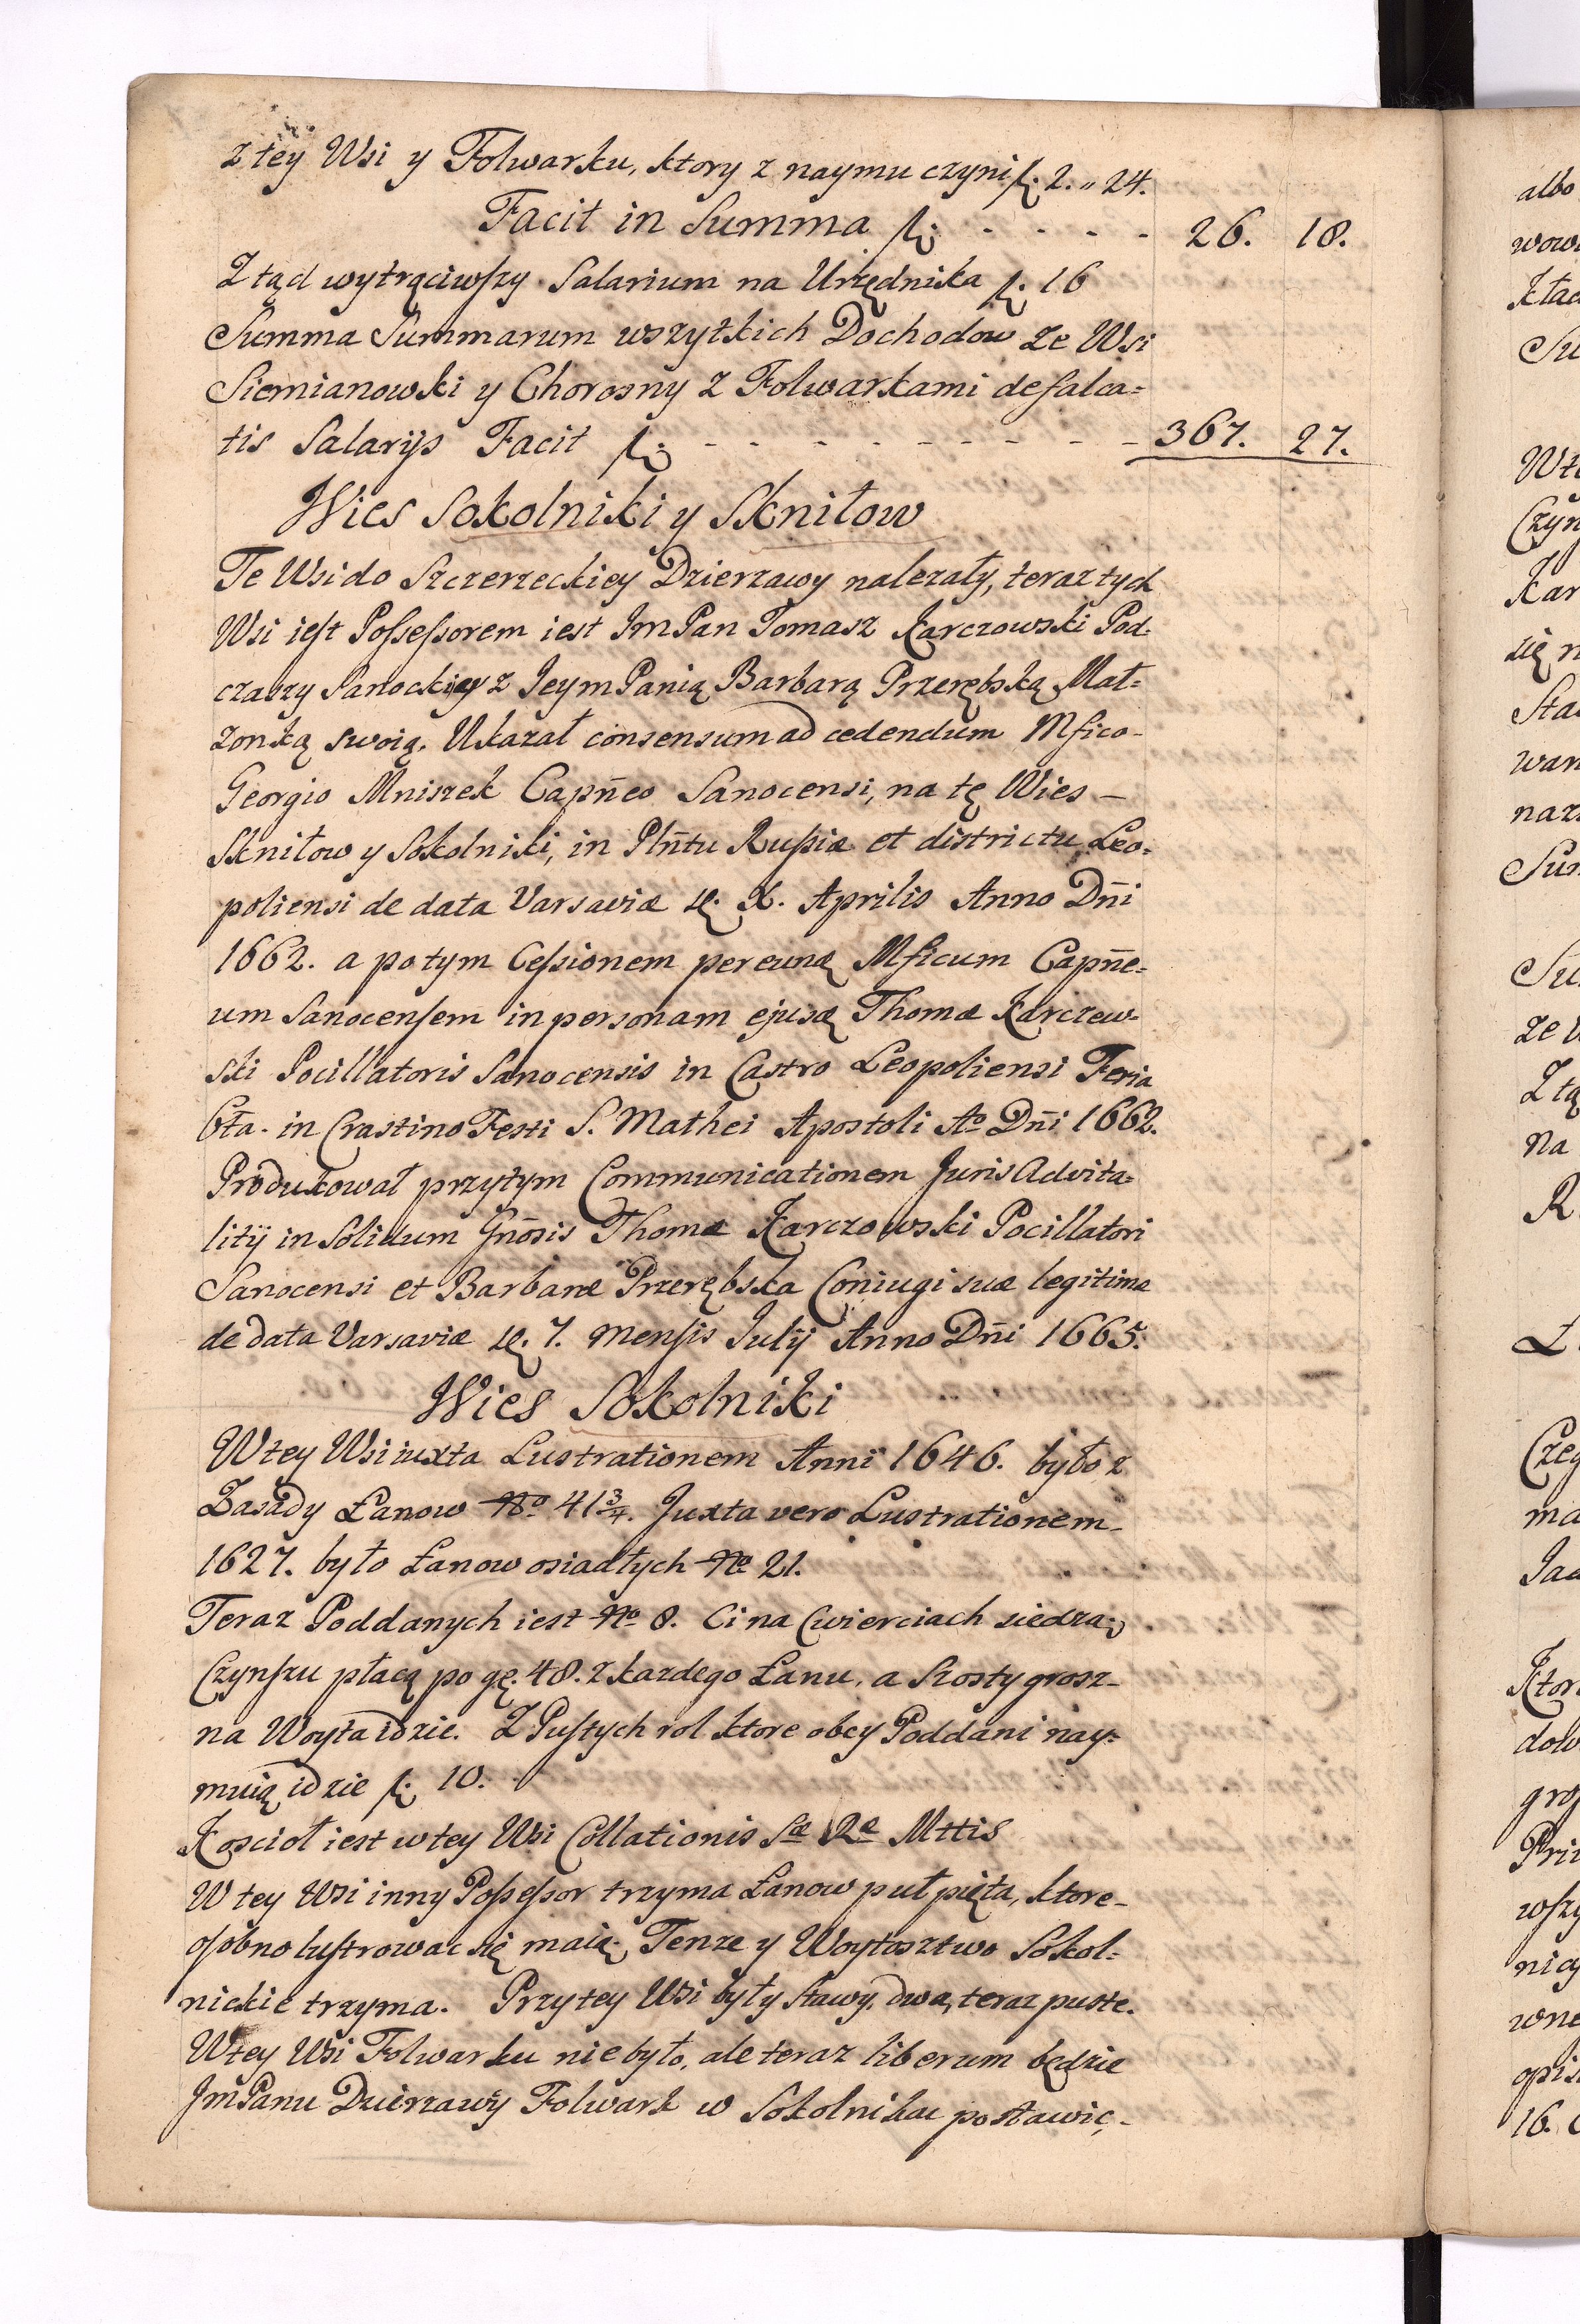 z tey Wsi y Folwarku, ktory z naymu czyni fl. 2. „ 24.
Facit in Summa fl. - - - - - 26. 18.
Ztąd wytrąciwszy Salarium na Urzędnika fl. 16
Summa Summarum wszytkich Dochodow ze Wsi
Siemianowki y Chorosny z Folwarkami defalca=
tis Salarijs Facit fl. - - - - - - - - - 367. 27.
Wies Sokolniki y Skniłow
Te Wsi do Szczerzeckiey Dzierzawy nalezały, teraz tych
Wsi iest Possessorem iest JmPan Tomasz Karczowski Pod=
czaszy Sanockiey z JeymPanią Barbarą Przerębską Mał=
zonką swoią. Ukazał consensum ad cedendum Mfico-
Georgio Mniszek Capñeo Sanocensi, na tę Wies -
Sknilow y Sokolniki, in Plñtu Russiæ et districtu Leo=
poliensi de data Varsaviæ X. Aprilis Anno Dñi
1662. a potym Cessionem per eund Mficum Capñe=
um Sanocensem in personam ejusd Thomæ Karczew=
ski Pocillatoris Sanocensis in Castro Leopoliensi Feria
6ta. in Crastino Festi S. Mathei Apostoli Aº Dñi 1662.
Produkował przytym Communicationem Juris Advita=
litÿ in Solidum Gñosis Thomæ Karczowski Pocillatori
Sanocensi et Barbaræ Przerębska Coniugi suæ legitimæ
de data Varsaviæ 7. Mensis Julÿ Anno Dñi 1665.
Wies Sokolniki
W tey Wsi iuxta Lustrationem Anni 1646. było z
Zasady Łanow Nº 41¾. Juxta vero Lustrationem-
1627. było Łanow osiadłych Nº 21.
Teraz Poddanych iest Nº 8. Ci na Cwierciach siedzą,
Czynszu płacą po g. 48. z kazdego Łanu, a Szosty grosz-
na Woyta idzie. Z Pustych rol ktore obcy Poddani nay=
muią idzie fl. 10.
Koscioł iest w tey Wsi Collationis Sæ Ræ Mttis
W tey Wsi inny Possessor trzyma Łanow puł pięta, ktore-
osobno lustrowac się maią. Tenze y Woytosztwo Sokol=
nickie trzyma. Przy tey Wsi były stawy dwa, teraz puste.
W tey Wsi Folwarku nie było, ale teraz liberum będzie
JmPanu Dzierzawÿ Folwark w Sokolnikac postawic,-